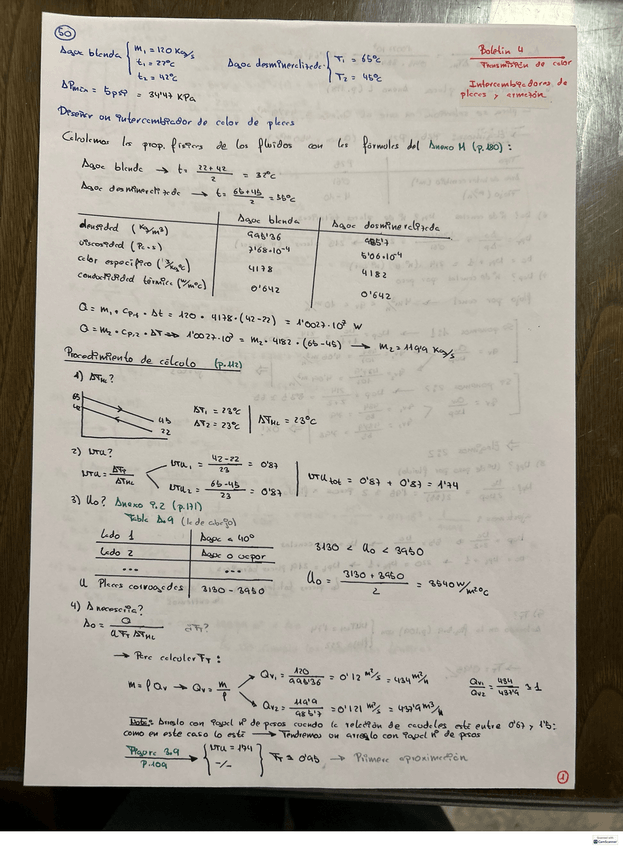 50
Agua blanda { m₁ = 120 Kg/s
t₁ = 22°C
t₂ = 42°C
Agua desmineralizada { T₁ = 65°C
T₂ = 45°C
Boletín 4
Transmisión de calor
Intercambiadores de
placas y armazón
ΔPmax = 5psi = 34'47 KPa
Diseñar un intercambiador de calor de placas
Calculamos las prop. físicas de los fluidos con las fórmulas del Anexo M (p.180) :
Agua blanda → t = 22+42 / 2 = 32°C
Agua desmineralizada → t = 65+45 / 2 = 55°C
Agua blanda | Agua desmineralizada
densidad (Kg/m³) | 995'36 | 985'7
viscosidad (Pa·s) | 7'68·10⁻⁴ | 5'06·10⁻⁴
calor específico (J/Kg°C) | 4178 | 4182
conductividad térmica (W/m°C) | 0'642 | 0'642
Q = m₁ · Cp,₁ · Δt = 120 · 4178 · (42-22) = 1'0027·10⁷ W
Q = m₂ · Cp,₂ · ΔT → 1'0027·10⁷ = m₂ · 4182 · (65-45) → m₂ = 119'9 Kg/s
Procedimiento de cálculo (p.112)
1) ΔTML?
65
42
45
22
ΔT₁ = 23°C
ΔT₂ = 23°C | ΔTML = 23°C
2) NTU?
NTU = ΔT / ΔTML
NTU₁ = 42-22 / 23 = 0'87
NTU₂ = 65-45 / 23 = 0'87
NTUtot = 0'87 + 0'87 = 1'74
3) U₀? Anexo A.2 (p.171)
Tabla A.9 (la de abajo)
Lado 1 | Agua a 40°
Lado 2 | Agua o vapor
... | ...
U Placas corrugadas | 3130 - 3950
3130 < U₀ < 3950
U₀ = 3130 + 3950 / 2 = 3540 W/m²°C
4) A necesaria?
A₀ = Q / U FT ΔTML
¿FT?
→ Para calcular FT :
m = ρ Qv → Qv = m / ρ
Qv₁ = 120 / 995'36 = 0'12 m³/s = 434 m³/h
Qv₂ = 119'9 / 985'7 = 0'121 m³/s = 437'9 m³/h
Qv₁ / Qv₂ = 434 / 437'9 ≅ 1
Nota: Arreglo con igual nº de pasos cuando la relación de caudales esté entre 0'67 y 1'5:
como en este caso lo está → Tendremos un arreglo con igual nº de pasos
Figura 3.9
p.109
NTU = 1'74
-/-
FT ≅ 0'95 → Primera aproximación
1
CamScanner